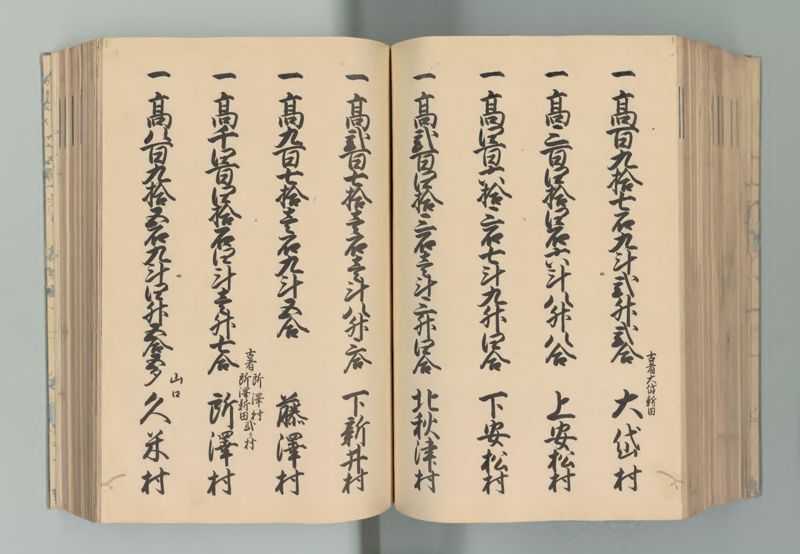 一高百九拾七石九斗弐升弐合
古者大岱新田
大岱村
一高三百四拾四石六斗八升八合
上安松村
一高四百六拾三石七斗九升四合
下安松村
一高弐百四拾三石壱斗三升四合
北秋津村
一高弐百七拾壱石壱斗八升六合
下新井村
一高九百七拾壱石九斗五合
藤澤村
一高千四百四拾石四斗壱升七合
古者所澤村
所澤新田弐ヶ村
所澤村
一高八百九拾五石九斗四升五合五夕
山口
久米村